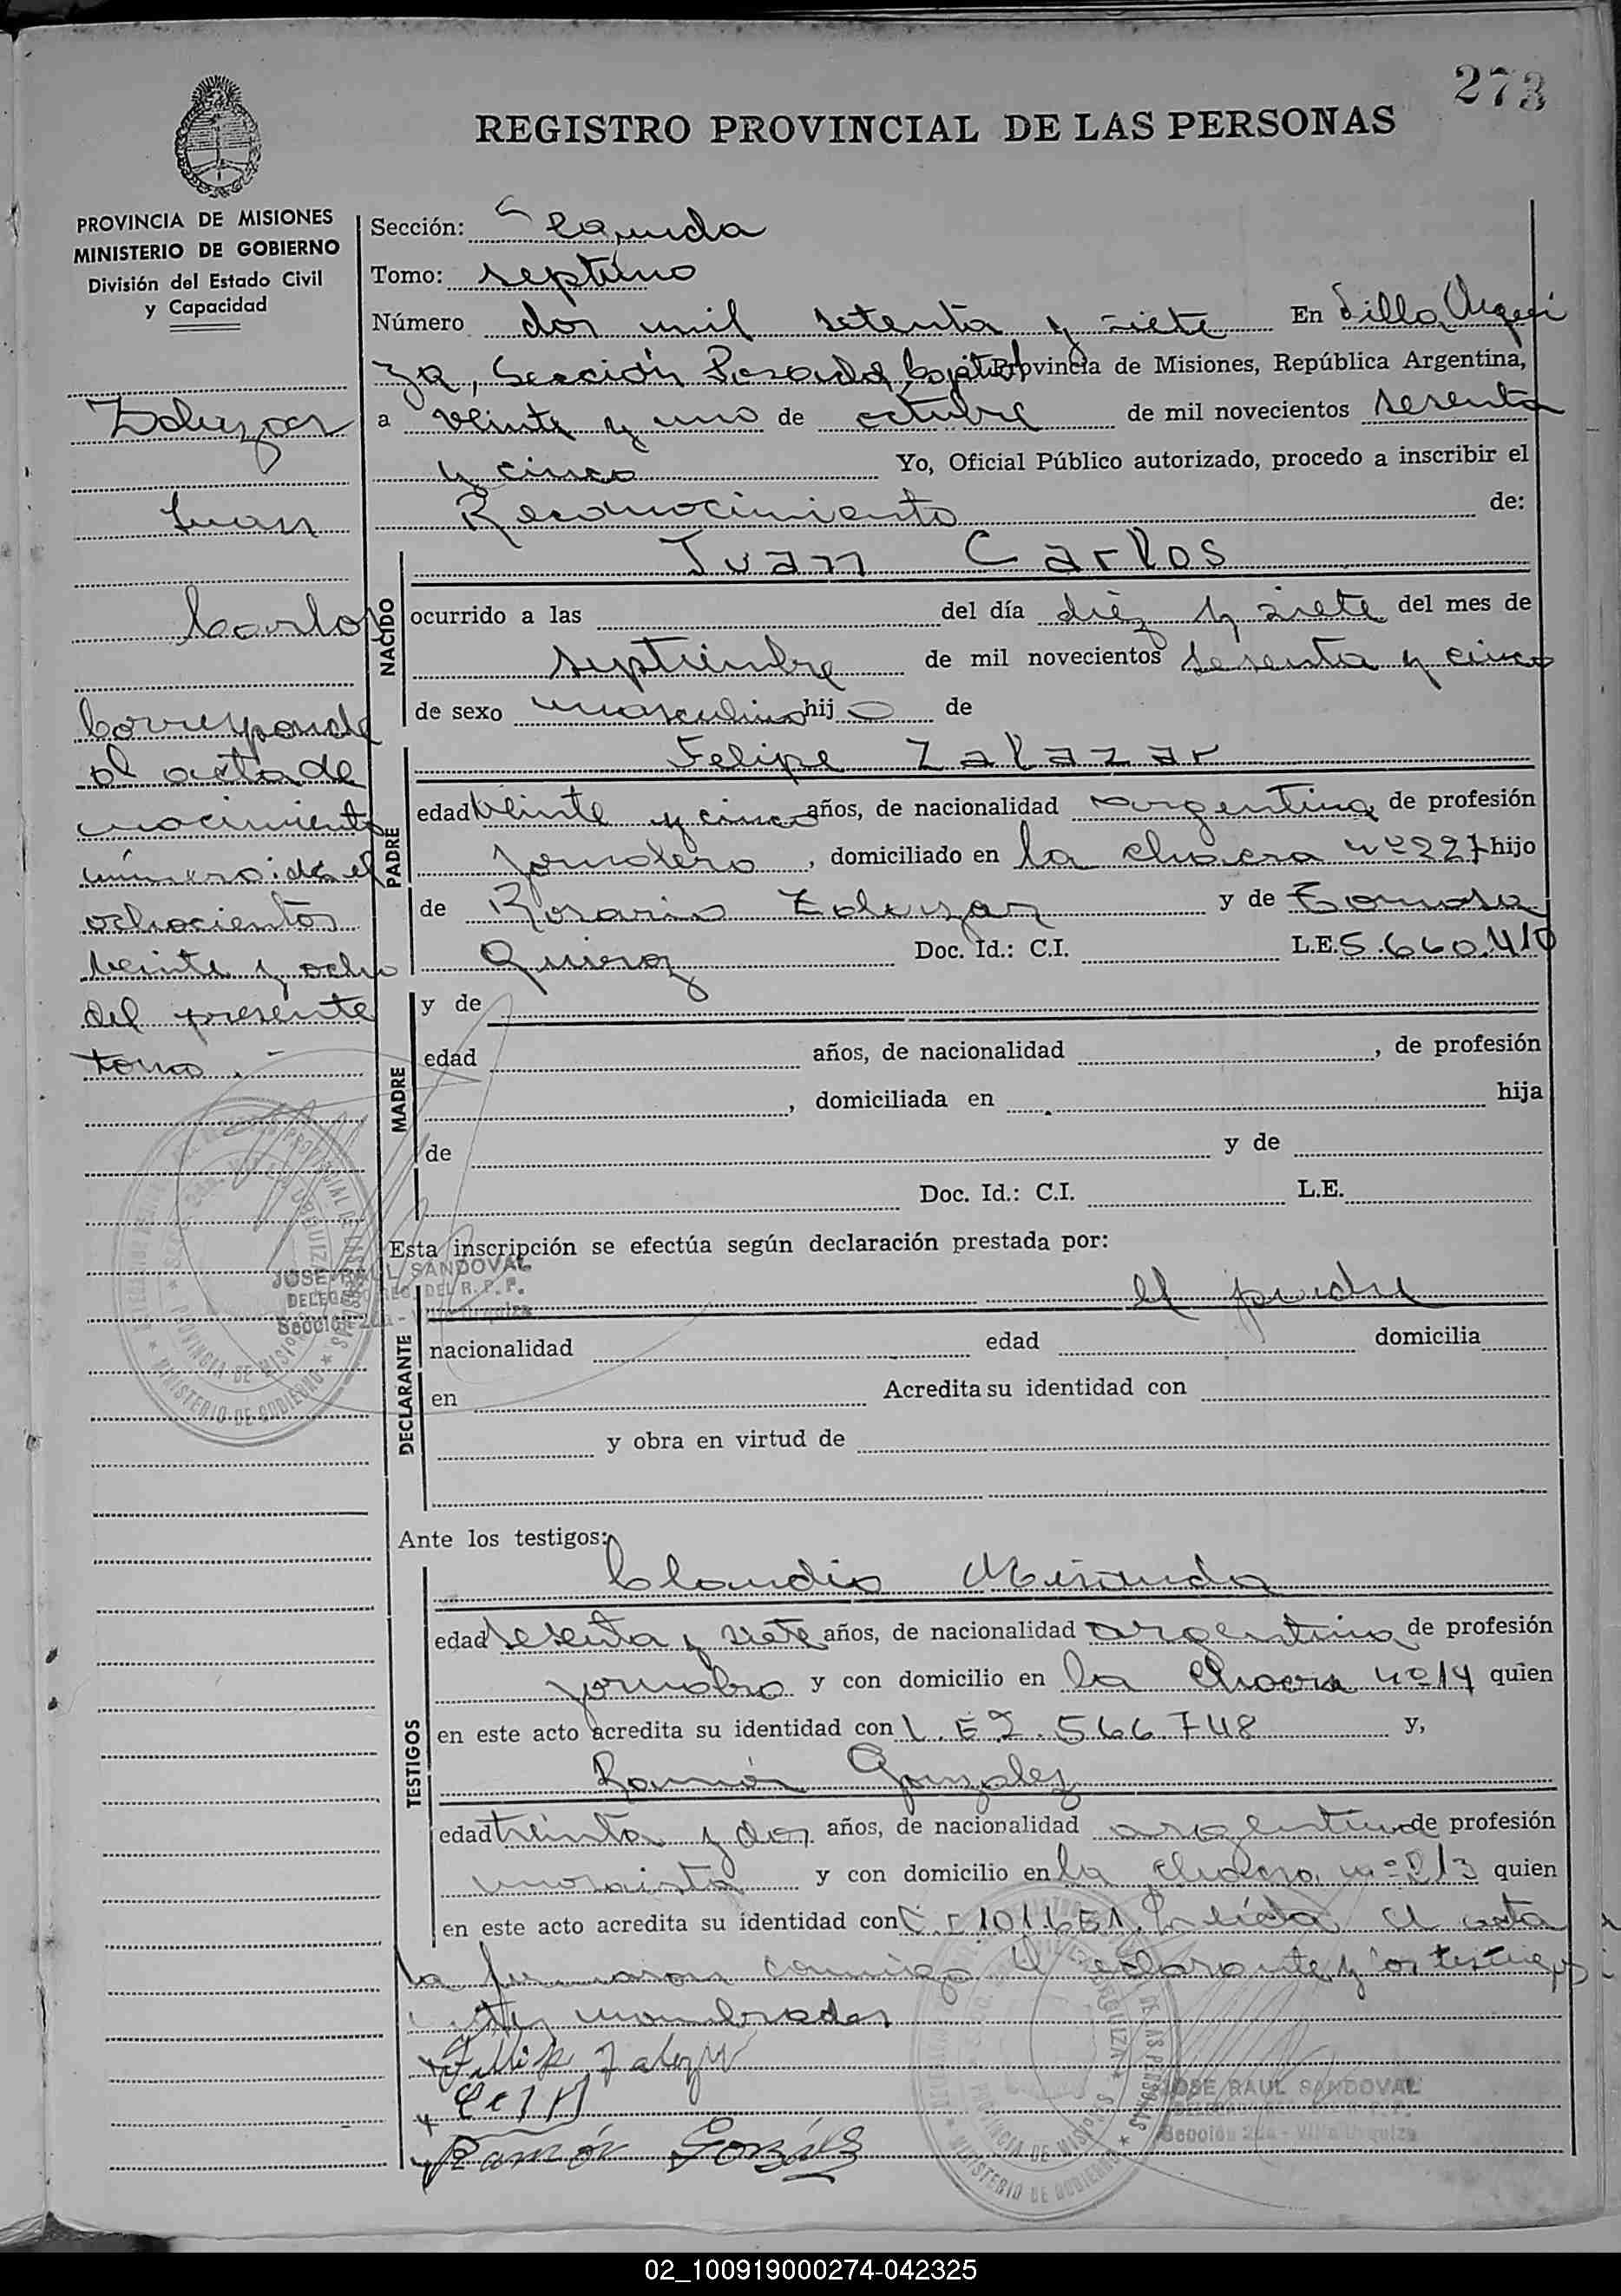 273
REGISTRO PROVINCIAL DE LAS PERSONAS
PROVINCIA DE MISIONES
MINISTERIO DE GOBIERNO
División del Estado Civil
y Capacidad
Zalazar
Juan
Carlos
Corresponde
al acta de
nacimiento
número: dos mil
ochocientos
veinte y ocho
del presente
tomo.-
Sección: Segunda
Tomo: septimo
Número dos mil setenta y siete En Villa Urqui
za, Sección Posadas, Capital Provincia de Misiones, República Argentina,
a veinte y uno de octubre de mil novecientos sesenta
y cinco Yo, Oficial Público autorizado, procedo a inscribir el
Reconocimiento de:
NACIDO
Juan Carlos
ocurrido a las del día diez y siete del mes de
septiembre de mil novecientos sesenta y cinco
de sexo masculino hijo de
PADRE
Felipe Zalazar
edad veinte y cinco años, de nacionalidad argentina de profesión
jornalero, domiciliado en la chacra nº 227 hijo
de Rosario Zalazar y de Tomasa
Quiroz Doc. Id.: C.I. L.E. 5.660.410
MADRE
y de
edad años, de nacionalidad , de profesión
, domiciliada en hija
de y de
Doc. Id.: C.I. L.E.
Esta inscripción se efectúa según declaración prestada por:
JOSE RAUL SANDOVAL
DELEGADO REG. DEL R. P. P.
Sección 2da - Villa Urquiza
DECLARANTE
el padre
nacionalidad edad domicilia
en Acredita su identidad con
y obra en virtud de
Ante los testigos:
TESTIGOS
Claudio Miranda
edad sesenta y siete años, de nacionalidad argentino de profesión
jornalero y con domicilio en la chacra nº 14 quien
en este acto acredita su identidad con L.E 2.566.748 y,
Ramón Gonzalez
edad treinta y dos años, de nacionalidad argentino de profesión
y con domicilio en la chacra nº 213 quien
en este acto acredita su identidad con Leída el acta
la firmaron conmigo el declarante y los testigos
nombrados
Zalazar
Ramón Gonzalez
JOSE RAUL SANDOVAL
Sección 2da - Villa Urquiza
02_100919000274-042325